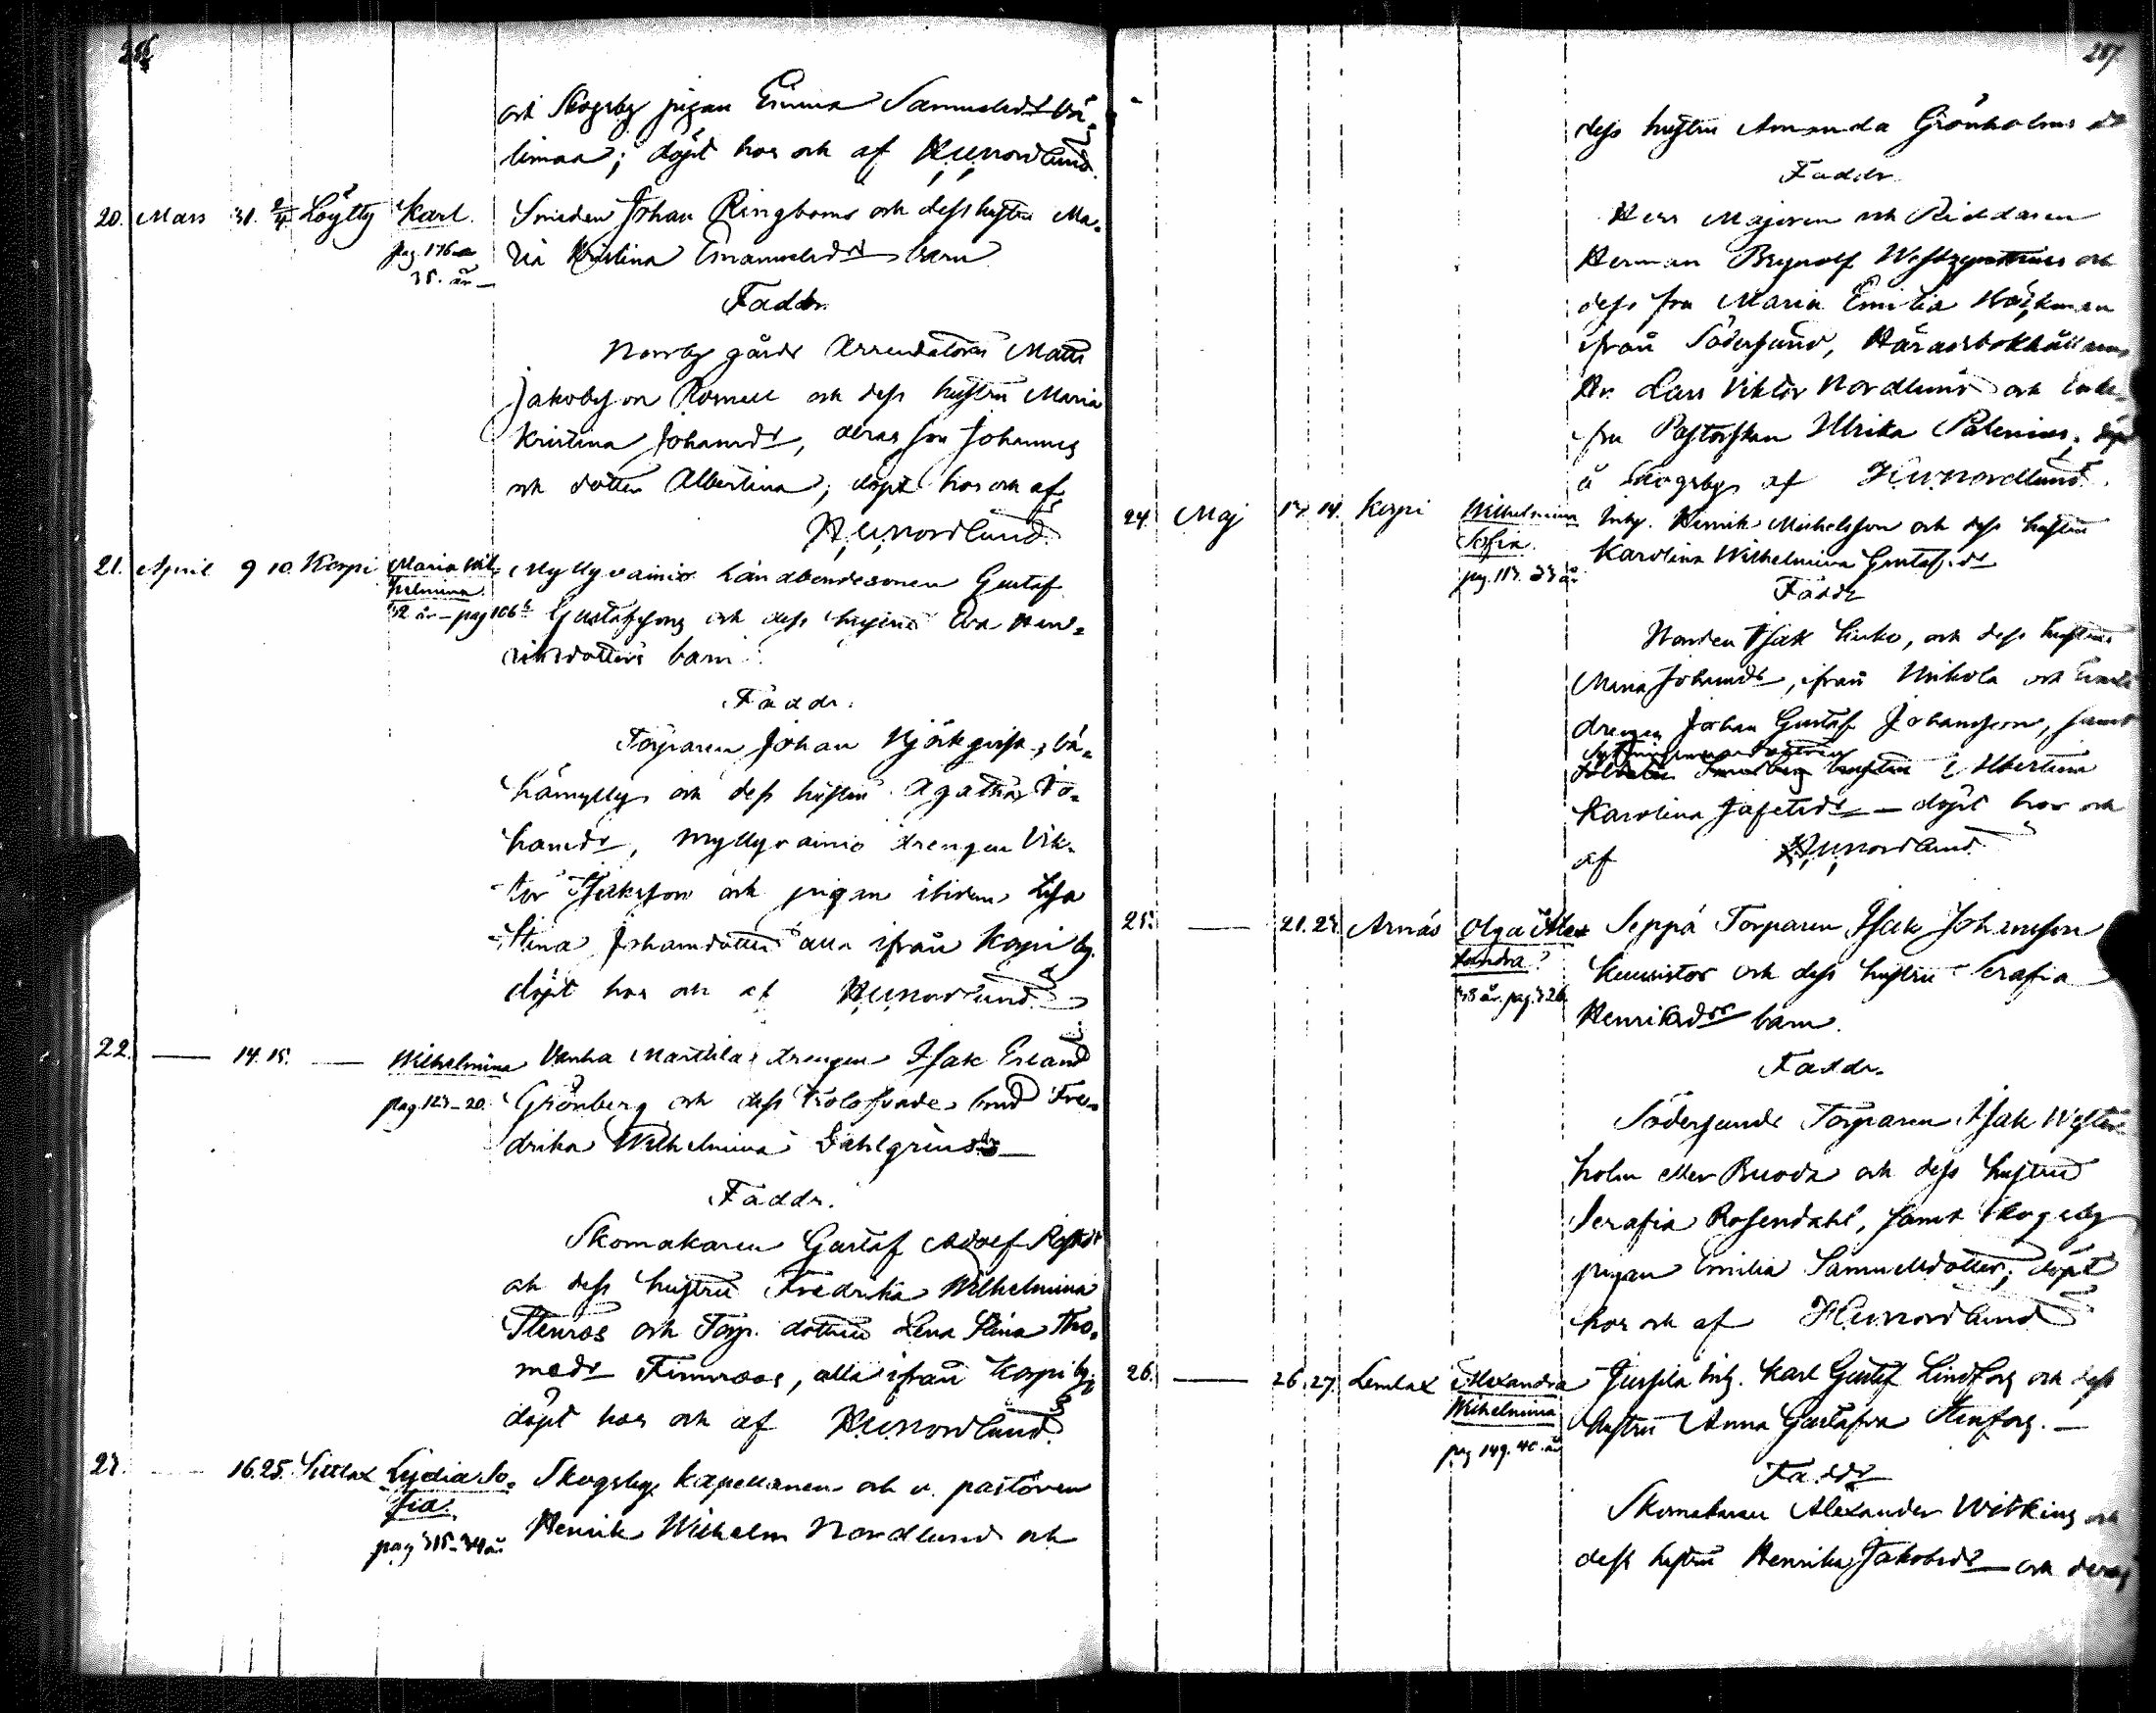 286
och Skogsby pigan Emma Samuelsdr Vä-
limaa; döpt hos och af H.W.Nordlund.
20. Mars 31. 2/4 Löytty Karl. Smeden Johan Ringboms och dess hustru Ma-
pag. 176 ria Kristina Emanuelsdr barn
35. år
Faddr.
Norrby gårds Arrendatorn Matts
Jakobsson Rosnell och dess hustru Maria
Kristina Johansdr, deras son Johannes
och dotter Albertina; döpt hos och af
H.W.Nordlund.
21. April 9 10. Korpi Maria Wil- Myllyvainio landbondesonen Gustaf
helmina.
32 år - pag 106 Gustafssons och dess hustru Eva Hen-
riksdotters barn.
Faddr.
Torparen Johan Björkqvist, Vä-
hämylly och dess hustru Agatha Jo-
hansdr, Myllyvainio drengen Vik-
tor Isaksson och pigan ibidem Lisa
Stina Johansdotter alla ifrån Korpi by.
döpt hos och af H.W.Nordlund.
22. — 14. 15. — Wilhelmina Vanha Marttila drengen Isak Erland
pag. 123-20. Grönberg och dess trolofvade brud Fre-
drika Wilhelmina Dahlgrens
Faddr.
Skomakaren Gustaf Adolf
och dess hustru Fredrika Wilhelmina
Stenroos och Torp. dottren Lena Stina Tho-
masdr Finnroos, alla ifrån Korpi by;
döpt hos och af H.W.Nordlund.
23. — 16. 25. Sittlax Lydia So- Skogsby kapellanen och v. pastoren
fia.
pag 315-34 år. Henrik Wilhelm Nordlund och
287.
dess hustru Amanda Grönholms
Faddr.
Herr Majoren och Riddaren
Herman Brynolf och
dess fru Maria Emilia
ifrån Södersund, Häradsbokhållaren
Hr. Lars Viktor Nordlund och Enke-
fru Pastorskan Ulrika Palenius, döpt
å Skogsby af H.W.Nordlund.
24. Maj 13. 14. Korpi Wilhelmina Inhy. Henrik Michelsson och dess hustru
Sofia. Karolina Wilhelmina Gustafsdr
pag. 113. 23 år
Faddr
Isak och dess hustru
Maria Johansdr, ifrån och
drengen Johan Gustaf Johansson, samt
Albertina
Karolina Jafetsdr — döpt hos och
af H.W.Nordlund.
25. — 21. 23. Arnäs Olga Alex- Seppä Torparen Isak Johansson
andra. Kuusistos och dess hustru Serafia
38 år. pag. 326. Henriksdrs barn.
Faddr.
Södersunds Torparen Isak Wester-
holm eller Buoda och dess hustru
Serafia Rosendahl, samt Skogsby
pigan Emilia Samuelsdotter; döpt
hos och af H.W.Nordlund
26. — 26. 27. Lemlax Alexandra Jussila Inhy. Karl Gustaf Lindfors och dess
Wilhelmina hustru Anna Gustafva Stenfors. —
pag 149. 40. år
Faddr
Skomakaren Alexander Widking och
dess hustru Henrika Jakobsdr — och deras